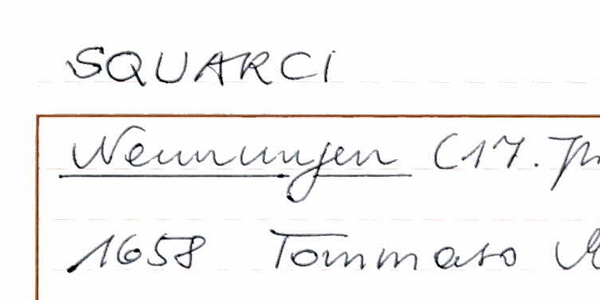 SQUARCI
Nennungen (17.
1658 Tommaso